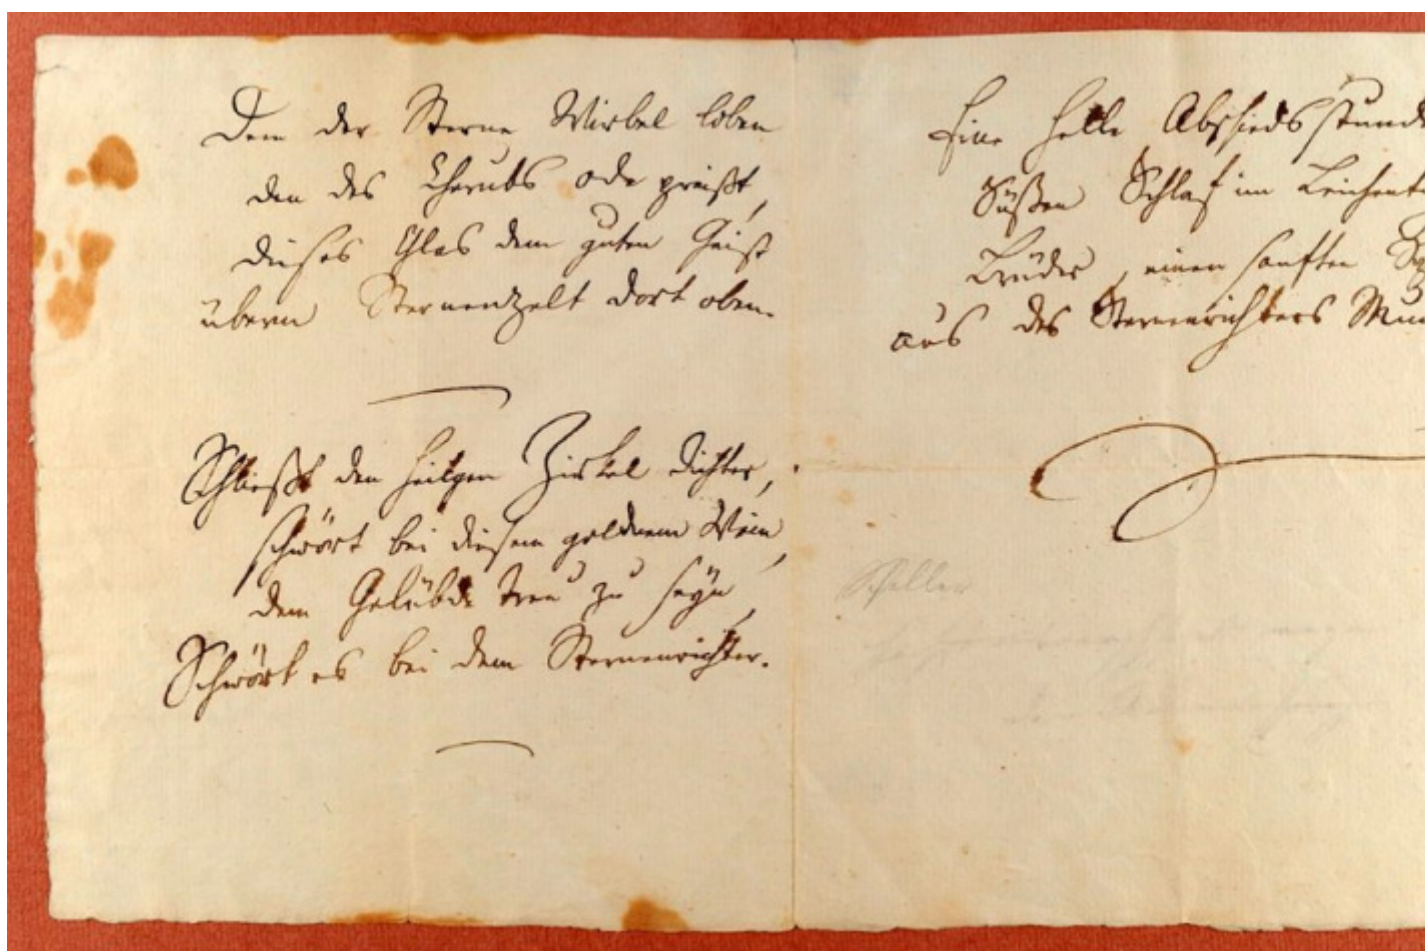 Dem der Sterne Wirbel loben
den des Cherubs Ode preißt,
dieses Glas dem guten Geist
überm Sternenzelt dort oben.
Schließt den heilgen Zirkel dichter,
schwört bei diesem goldnem Wein,
dem Gelübde treu zu seyn,
Schwört es bei dem Sternenrichter.
Eine helle Abschiedsstunde
Süßen Schlaf im
Brüder, einen sanften
aus des Sternenrichters
Schiller